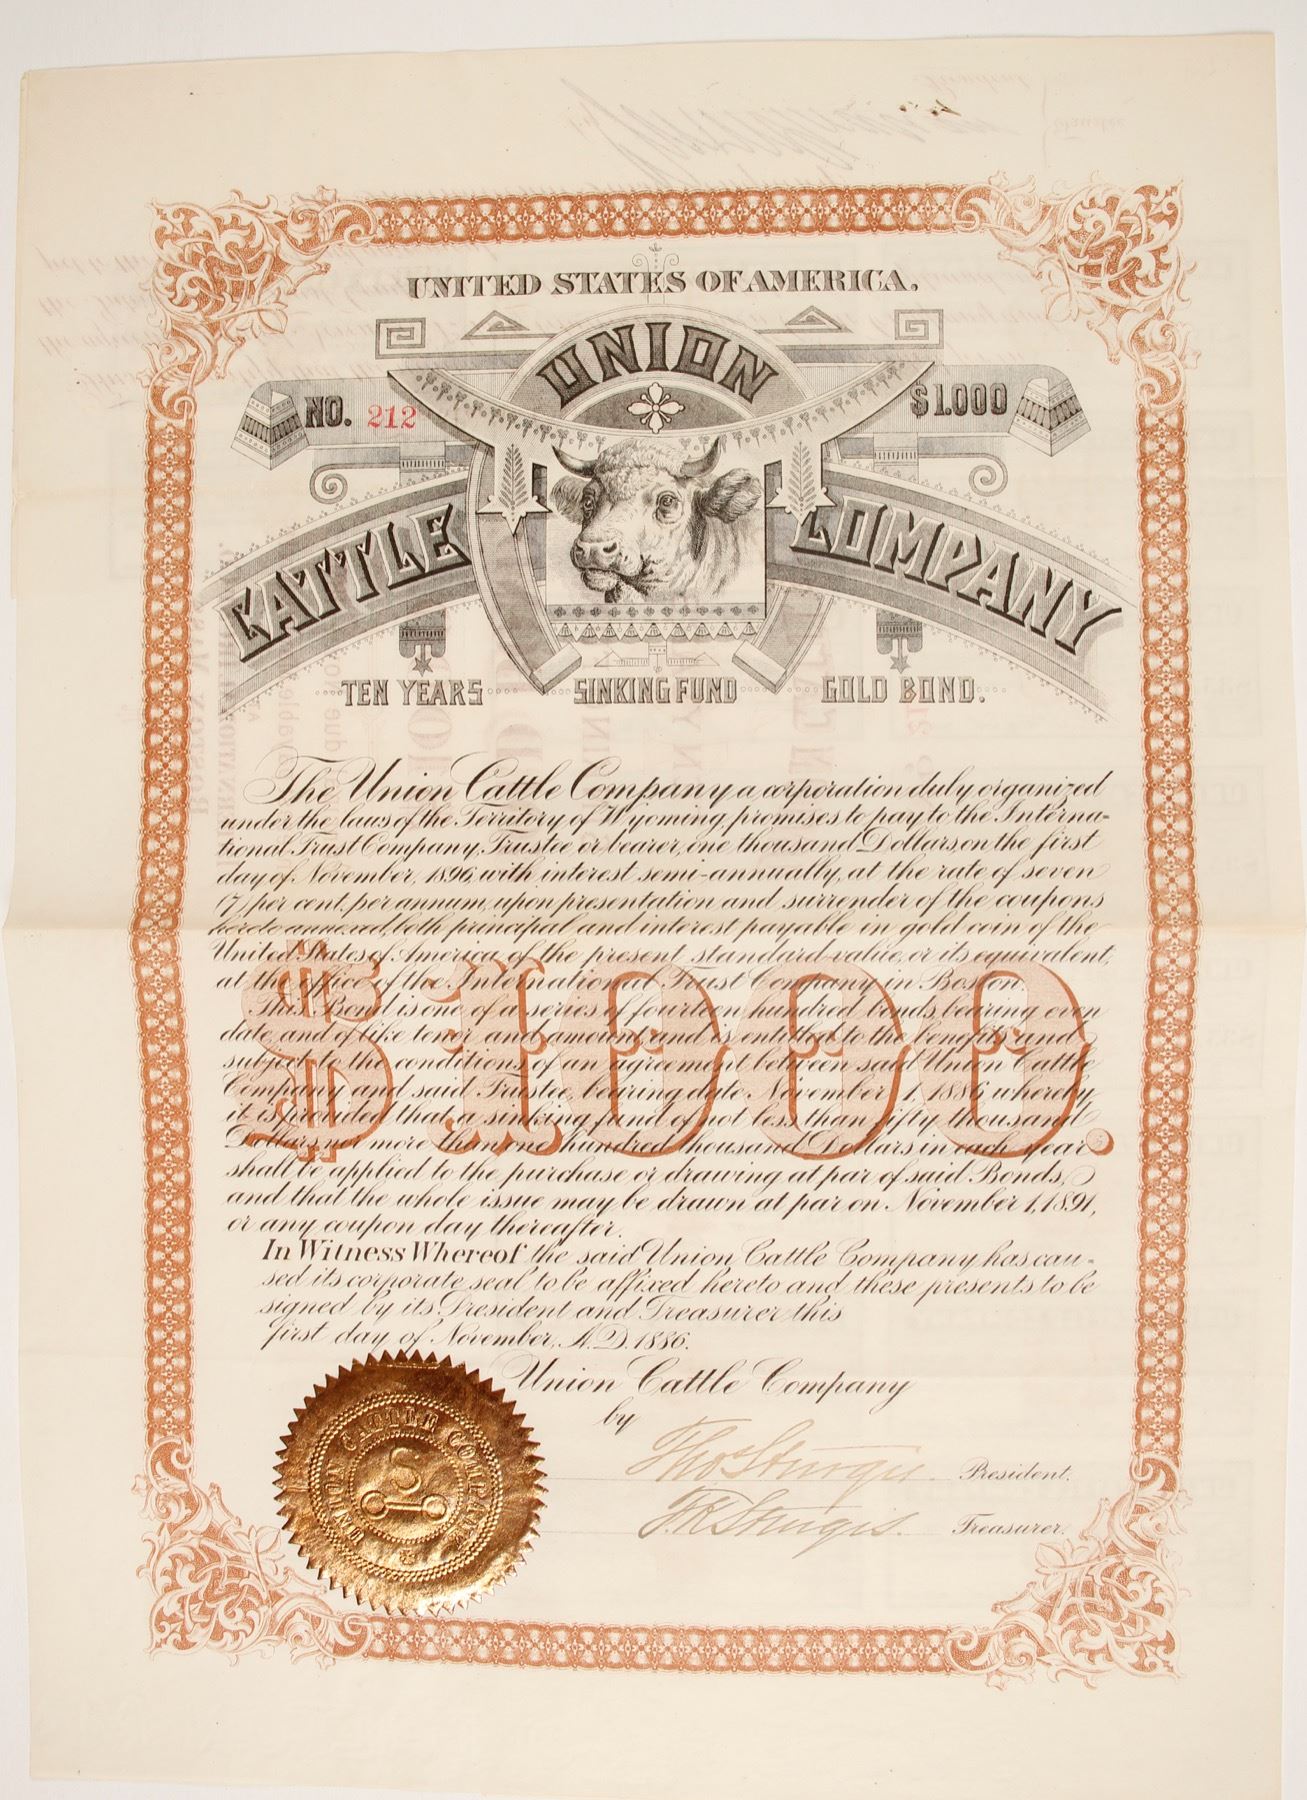 UNITED STATES OF AMERICA.
UNION
NO. 212
$1.000
CATTLE COMPANY
TEN YEARS SINKING FUND GOLD BOND.
The Union Cattle Company a corporation duly organized
under the laws of the Territory of Wyoming, promises to pay to the Interna-
tional Trust Company, Trustee or bearer, one thousand Dollars, on the first
day of November, 1896, with interest semi-annually, at the rate of seven
(7) per cent. per annum, upon presentation and surrender of the coupons
hereto annexed, both principal and interest payable in gold coin of the
United States of America of the present standard value, or its equivalent,
at the office of the International Trust Company in Boston.
This Bond is one of a series of fourteen hundred bonds, bearing even
date, and of like tenor and amount, and is entitled to the benefits and
subject to the conditions of an agreement between said Union Cattle
Company and said Trustee, bearing date November 1, 1886, whereby
it is provided that a sinking fund of not less than fifty thousand
Dollars, nor more than one hundred thousand Dollars in each year
shall be applied to the purchase or drawing at par of said Bonds,
and that the whole issue may be drawn at par on November 1, 1891,
or any coupon day thereafter.
$1000.
In Witness Whereof the said Union Cattle Company has cau-
sed its corporate seal to be affixed hereto and these presents to be
signed by its President and Treasurer this
first day of November, A.D. 1886.
Union Cattle Company
by
Thos Sturgis. President.
F.K. Sturgis. Treasurer.
UNION CATTLE COMPANY
S